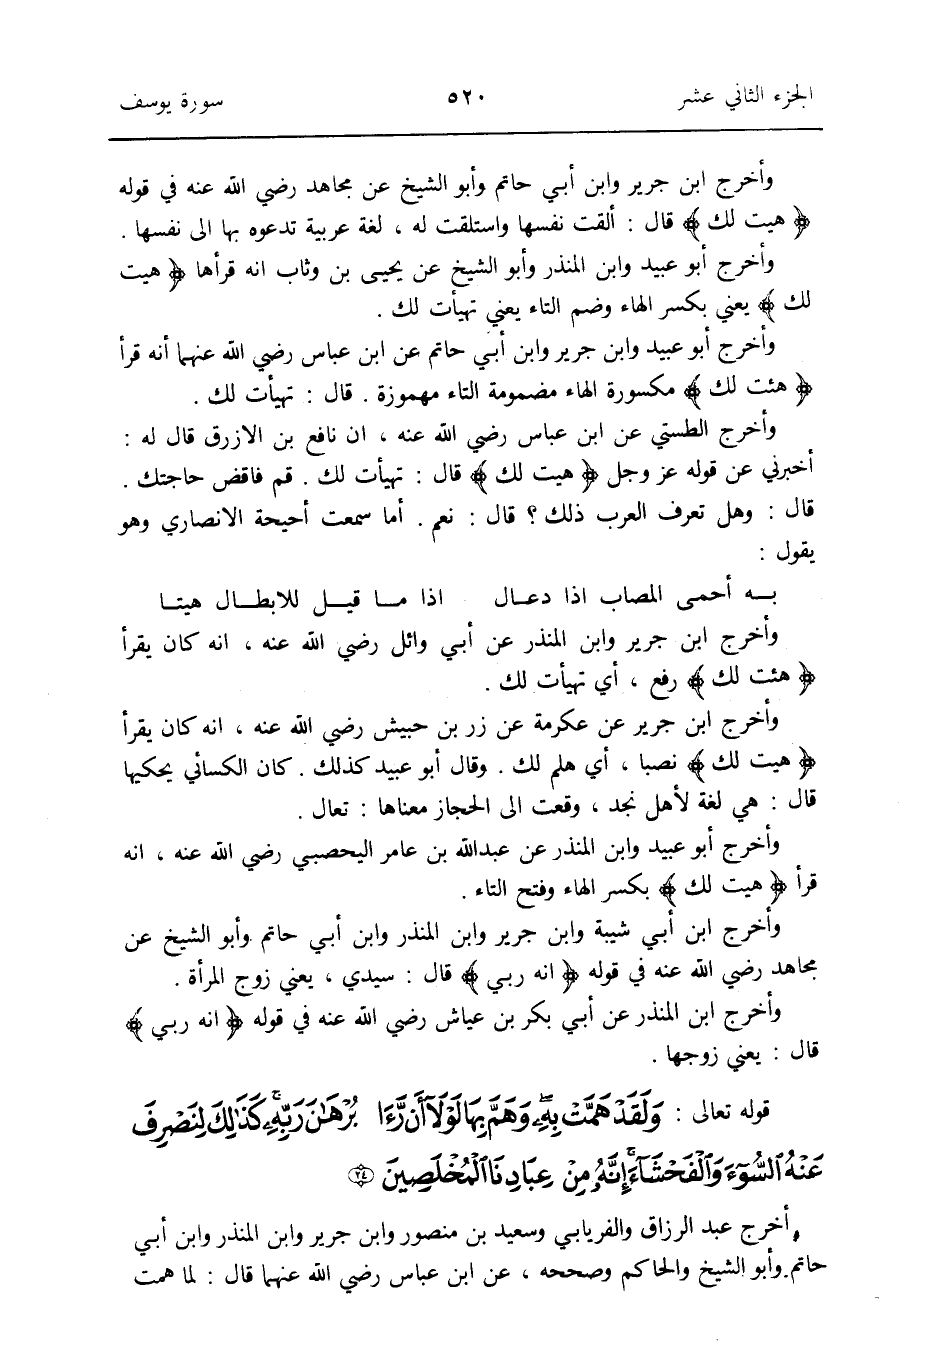 الجزء الثاني عشر ٥٢٠ سورة يوسف
وأخرج ابن جرير وابن أبي حاتم وأبو الشيخ عن مجاهد رضي الله عنه في قوله
﴿ هيت لك ﴾ قال : ألقت نفسها واستلقت له ، لغة عربية تدعوه بها الى نفسها .
وأخرج أبو عبيد وابن المنذر وأبو الشيخ عن يحيى بن وثاب انه قرأها ﴿ هيت
لك ﴾ يعني بكسر الهاء وضم التاء يعني تهيأت لك .
وأخرج أبو عبيد وابن جرير وابن أبي حاتم عن ابن عباس رضي الله عنهما أنه قرأ
﴿ هئت لك ﴾ مكسورة الهاء مضمومة التاء مهموزة . قال : تهيأت لك .
وأخرج الطستي عن ابن عباس رضي الله عنه ، ان نافع بن الازرق قال له :
أخبرني عن قوله عز وجل ﴿ هيت لك ﴾ قال : تهيأت لك . قم فاقض حاجتك .
قال : وهل تعرف العرب ذلك ؟ قال : نعم . أما سمعت أحيحة الانصاري وهو
يقول :
بـه أحمى المصاب اذا دعـال اذا مـا قيـل للابطـال هيتـا
وأخرج ابن جرير وابن المنذر عن أبي وائل رضي الله عنه ، انه كان يقرأ
﴿ هئت لك ﴾ رفع ، أي تهيأت لك .
وأخرج ابن جرير عن عكرمة عن زر بن حبيش رضي الله عنه ، انه كان يقرأ
﴿ هيت لك ﴾ نصبا ، أي هلم لك . وقال أبو عبيد كذلك . كان الكسائي يحكيها
قال : هي لغة لأهل نجد ، وقعت الى الحجاز معناها : تعال .
وأخرج أبو عبيد وابن المنذر عن عبدالله بن عامر اليحصبي رضي الله عنه ، انه
قرأ ﴿ هيت لك ﴾ بكسر الهاء وفتح التاء .
وأخرج ابن أبي شيبة وابن جرير وابن المنذر وابن أبي حاتم وأبو الشيخ عن
مجاهد رضي الله عنه في قوله ﴿ انه ربي ﴾ قال : سيدي ، يعني زوج المرأة .
وأخرج ابن المنذر عن أبي بكر بن عياش رضي الله عنه في قوله ﴿ انه ربي ﴾
قال : يعني زوجها .
قوله تعالى : وَلَقَدْ هَمَّتْ بِهِۦ وَهَمَّ بِهَا لَوْلَآ أَن رَّءَا بُرْهَـٰنَ رَبِّهِۦ كَذَٰلِكَ لِنَصْرِفَ
عَنْهُ ٱلسُّوٓءَ وَٱلْفَحْشَآءَ إِنَّهُۥ مِنْ عِبَادِنَا ٱلْمُخْلَصِينَ ٢٤
أخرج عبد الرزاق والفريابي وسعيد بن منصور وابن جرير وابن المنذر وابن أبي
حاتم وأبو الشيخ والحاكم وصححه ، عن ابن عباس رضي الله عنهما قال : لما همت